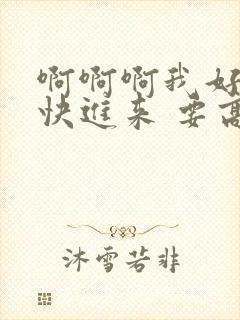 啊啊啊我好
快进来 要高
沐雪若非